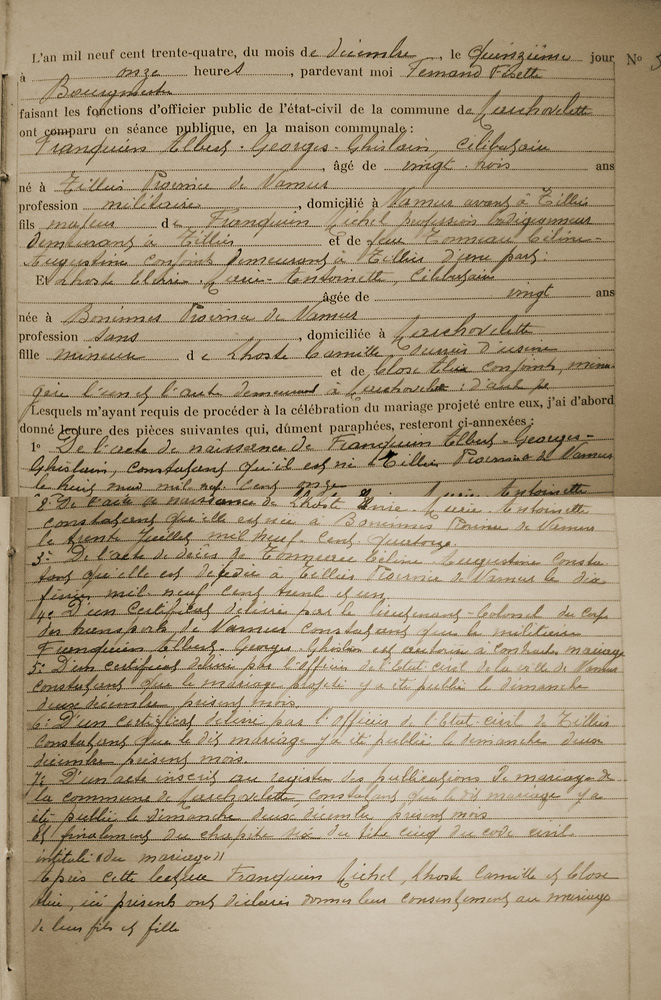 L'an mil neuf cent trente-quatre, du mois de décembre, le quinzième jour N°
à onze heures, pardevant moi Fernand
Bourgmestre
faisant les fonctions d'officier public de l'état-civil de la commune de Marchovelette
ont comparu en séance publique, en la maison communale :
Franquien Albert-Georges-Ghislain, célibataire
, âgé de vingt-trois ans
né à Tillier Province de Namur
profession militaire, domicilié à Namur avant à Tillier
fils majeur de Franquien Michel profession badigeonneur
demeurant à Tillier et de feue Tonneau Céline-
Augustine conjoint demeurant à Tillier d'une part;
Et Lhoste Marie-Antoinette, célibataire
âgée de vingt ans
née à Boninnes Province de Namur
profession sans, domiciliée à Marchovelette
fille mineure de Lhoste Camille, ouvrier d'usine
et de Close Elie conjoints, ména-
gère l'un et l'autre demeurant à Marchovelette ; d'autre pt
Lesquels m'ayant requis de procéder à la célébration du mariage projeté entre eux, j'ai d'abord
donné lecture des pièces suivantes qui, dûment paraphées, resteront ci-annexées :
1° De l'acte de naissance de Franquien Albert-Georges-
Ghislain, constatant qu'il est né à Tillier Province de Namur
le huit mai mil neuf cent onze
2° De l'acte de naissance de Lhoste Marie-Antoinette
constatant qu'elle est née à Boninnes Province de Namur
le trente juillet mil neuf cent quatorze.
3° De l'acte de décès de Tonneau Céline Augustine consta-
tant qu'elle est décédée à Tillier Province de Namur le dix
février mil neuf cent trente et un
4° D'un certificat délivré par le lieutenant-Colonel du corps
des transports de Namur constatant que le militaire
Franquien Albert-Georges-Ghislain est autorisé à contracter mariage
5° D'un certificat délivré par l'officier de l'Etat-civil de la ville de Namur
constatant que le mariage projeté y a été publié le dimanche
deux décembre, présent mois.
6° D'un certificat délivré par l'officier de l'Etat-civil de Tillier
constatant que le dit mariage y a été publié le dimanche deux
décembre présent mois.
7° D'un acte inscrit au registre des publications de mariage de
la commune de Marchovelette, constatant que le dit mariage y a
été publié le dimanche deux décembre, présent mois
Et finalement du chapitre six du titre cinq du code civil
intitulé «du mariage»
Après cette lecture Franquien Michel, Lhoste Camille et Close
Elie, ici présents ont déclaré donner leur consentement au mariage
de leurs fils et fille